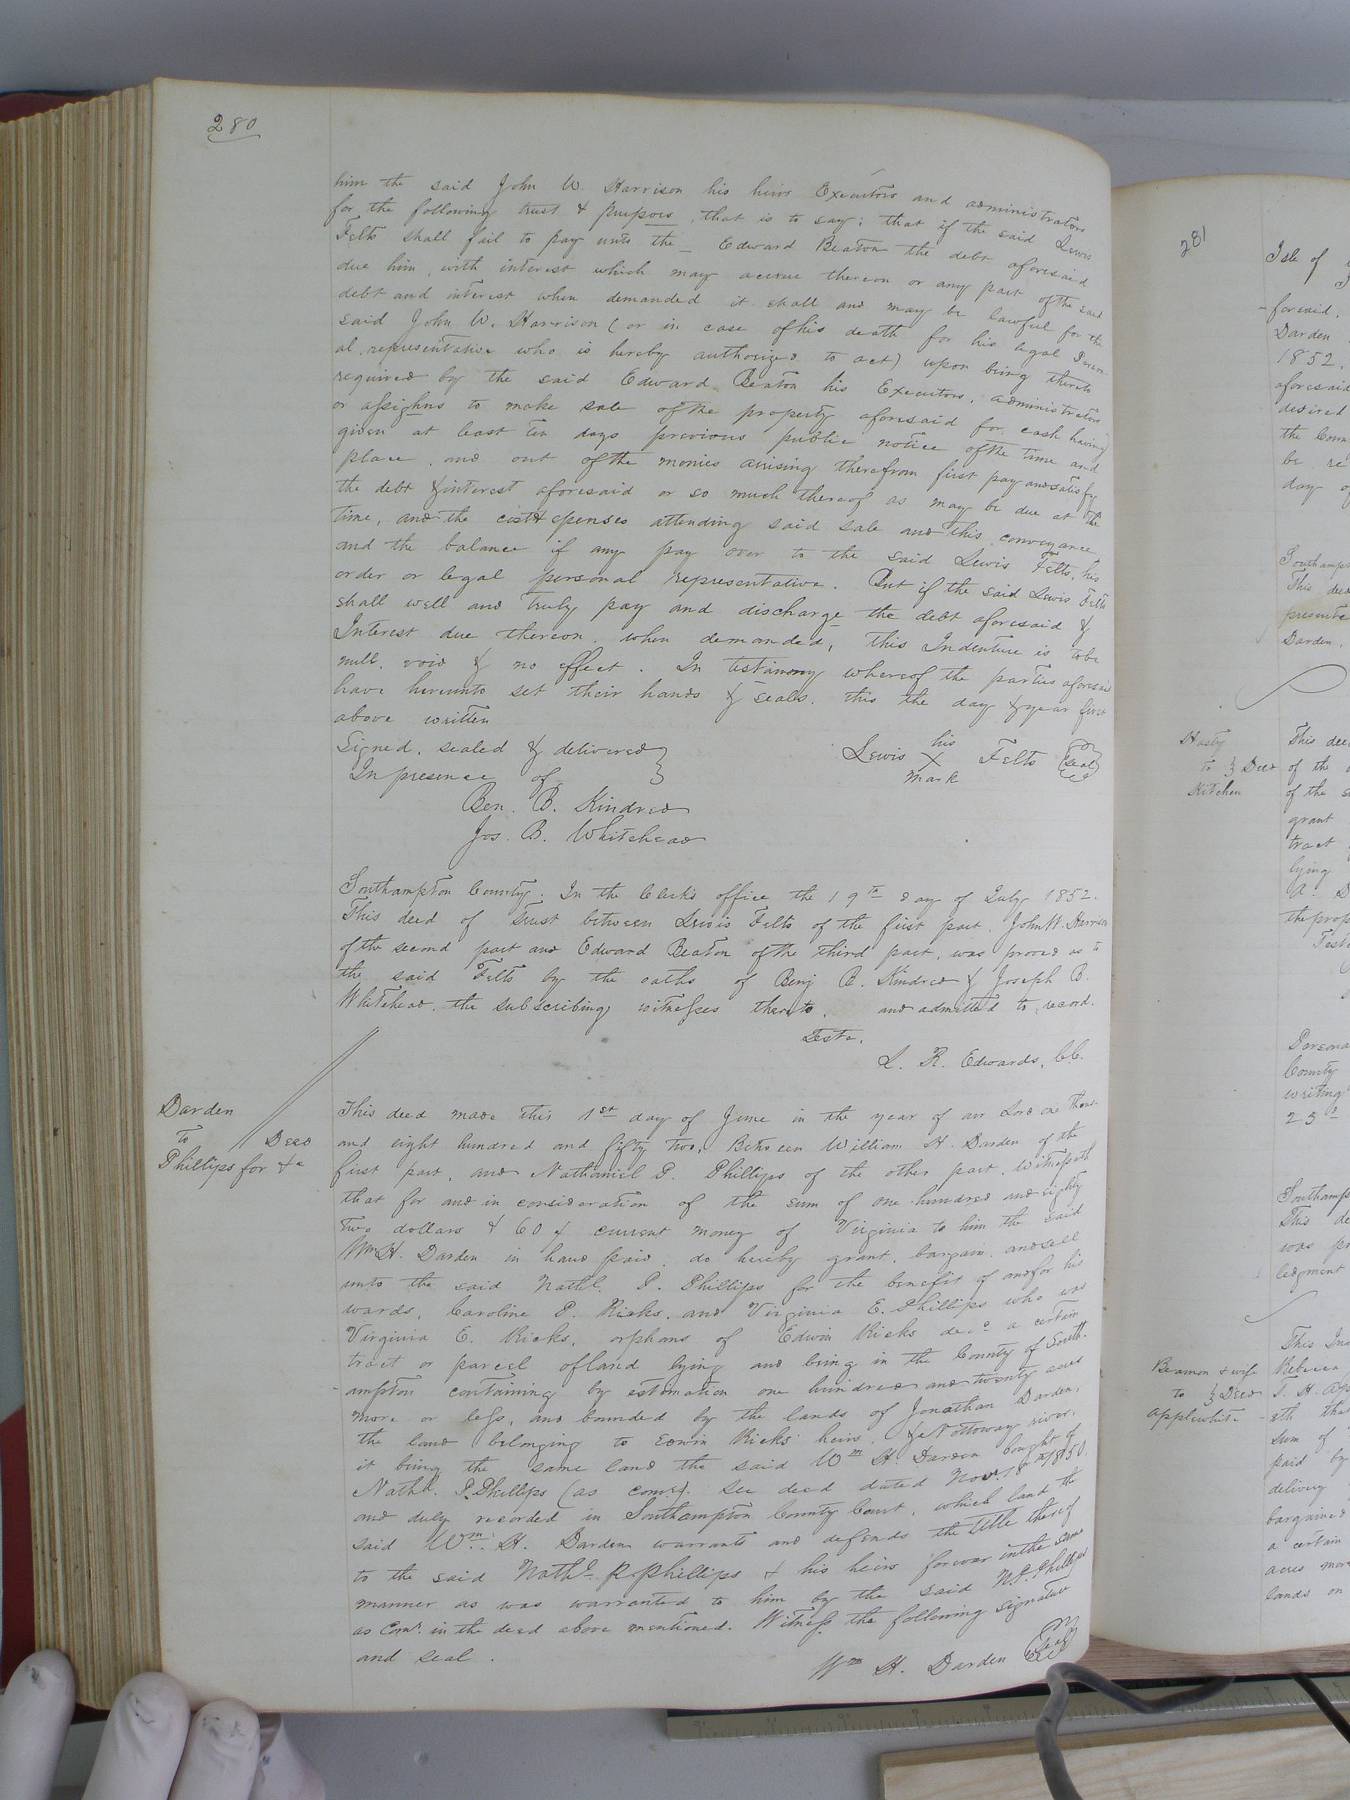 280
him the said John W. Harrison his heirs Executors and administrators
for the following trust & purposes, that is to say; that if the said Lewis
Felts shall fail to pay unto the Edward Beaton the debt aforesaid
due him, with interest which may accrue thereon or any part of the said
debt and interest when demanded it shall and may be lawful for the
said John W. Harrison (or in case of his death for his legal Person
al, representative who is hereby authorized to act) upon being thereto
required by the said Edward Beaton his Executors, administrators
or assighns to make sale of the property aforesaid for cash having
given at least ten days previous public notice of the time and
place, and out of the monies airising therefrom first pay and satisfy
the debt & interest aforesaid or so much thereof as may be due at the
time, and the cost & expenses attending said sale and this conveyance
and the balance if any pay over to the said Lewis Felts, his
order or legal personal representative. But if the said Lewis Felts
shall well and truly pay and discharge the debt aforesaid &
Interest due thereon, when demanded, this Indenture is to be
null, void & no effect. In testimony whereof the parties aforesaid
have hereunto set their hands & seals, this the day & year first
above written
Signed, sealed & delivered
In presence of
Lewis his X mark Felts (Seal)
Ben. B. Kindred
Jos. B. Whitehead
Southampton County: In the Clerk's office the 19th day of July 1852.
This deed of trust between Lewis Felts of the first part, John W. Harrison
of the second part and Edward Beaton of the third part, was proved as to
the said Felts by the oaths of Benj B. Kindred & Joseph B.
Whitehead the subscribing witnesses thereto, and admitted to record.
Teste,
L. R. Edwards, CC.
Darden
to Deed
Phillips for &c
This deed made this 1st day of June in the year of our Lord one thous
and eight hundred and fifty two, Between William H. Darden of the
first part, and Nathaniel P. Phillips of the other part, Witnesseth
that for and in consideration of the sum of one hundred and eighty
two dollars & 60 ¢ current money of Virginia to him the said
Wm H. Darden in hand paid, do hereby grant, bargain, and sell
unto the said Nathl. P. Phillips for the benefit of and for his
wards, Caroline P. Ricks, and Virginia E. Phillips who was
Virginia E. Ricks, orphans of Edwin Ricks decd. a certain
tract or parcel of land lying and being in the County of South-
ampton containing by estimation one hundred and twenty acres
more or less, and bounded by the lands of Jonathan Darden,
the land belonging to Edwin Ricks' heirs, & Nottoway river,
it being the same land the said Wm H. Darden bought of
Nathl. P. Phillips (as comr). See deed dated Nov. 18th 1850
and duly recorded in Southampton County Court, which land the
said Wm. H. Darden warrants and defends the title thereof
to the said Nathl. P. Phillips & his heirs forever in the same
manner as was warranted to him by the said N. P. Phillips
as Comr. in the deed above mentioned. Witness the following signature
and seal.
Wm H. Darden (Seal)
281
Isle of
-foresaid,
Darden
1852,
aforesaid
desired
the Com
be re
day of
Southampt
This deed
presente
Darden,
Hasty
to } Deed
Kitchen
This dee
of the
of the s
grant
tract
lying
A. D
the prop
Test
Persona
County
writing
25
Southamp
This de
was pr
ledgment
Beamon & wife
to } Deed
Applewhite
This Ind
Rebecca
T. H. App
-eth that
sum of
paid by
delivery
bargained
a certain
acres more
lands on